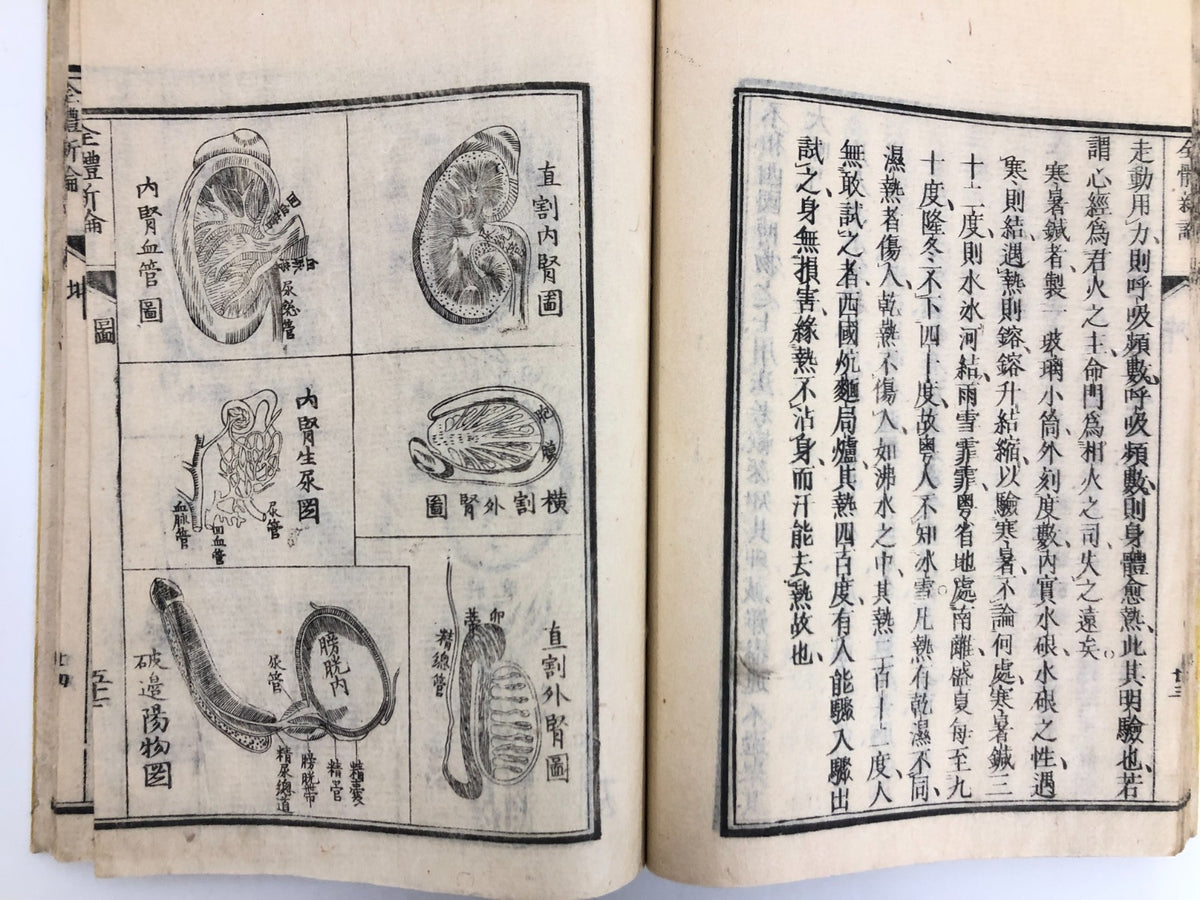 全體新論
廿三
走動用力則呼吸頻數呼吸頻數則身體愈熱此其明驗也若
謂心經為君火之主命門為相火之司失之遠矣
寒暑鍼者製一玻璃小筒外刻度數內實水硍水硍之性遇
寒則結遇熱則鎔鎔升結縮以驗寒暑不論何處寒暑鍼三
十二度則水冰河結雨雪霏霏粵省地處南離盛夏每至九
十度隆冬不下四十度故粵人不知冰雪凡熱有乾濕不同
濕熱者傷人乾熱不傷人如沸水之中其熱二百一十二度人
無敢試之者西國炕麵局爐其熱四百度有人能驟入驟出
試之身無損害緣熱不沾身而汗能去熱故也
直割內腎圖
內腎血管圖
回血管
血脉管
尿總管
橫割外腎圖
內腎生尿圖
血脉管
回血管
尿管
直割外腎圖
卵蒂
精總管
破邊陽物圖
膀胱內
尿管
精囊
精管
膀胱蒂
精尿總道
全體新論
圖
五十一
全體新論
坤